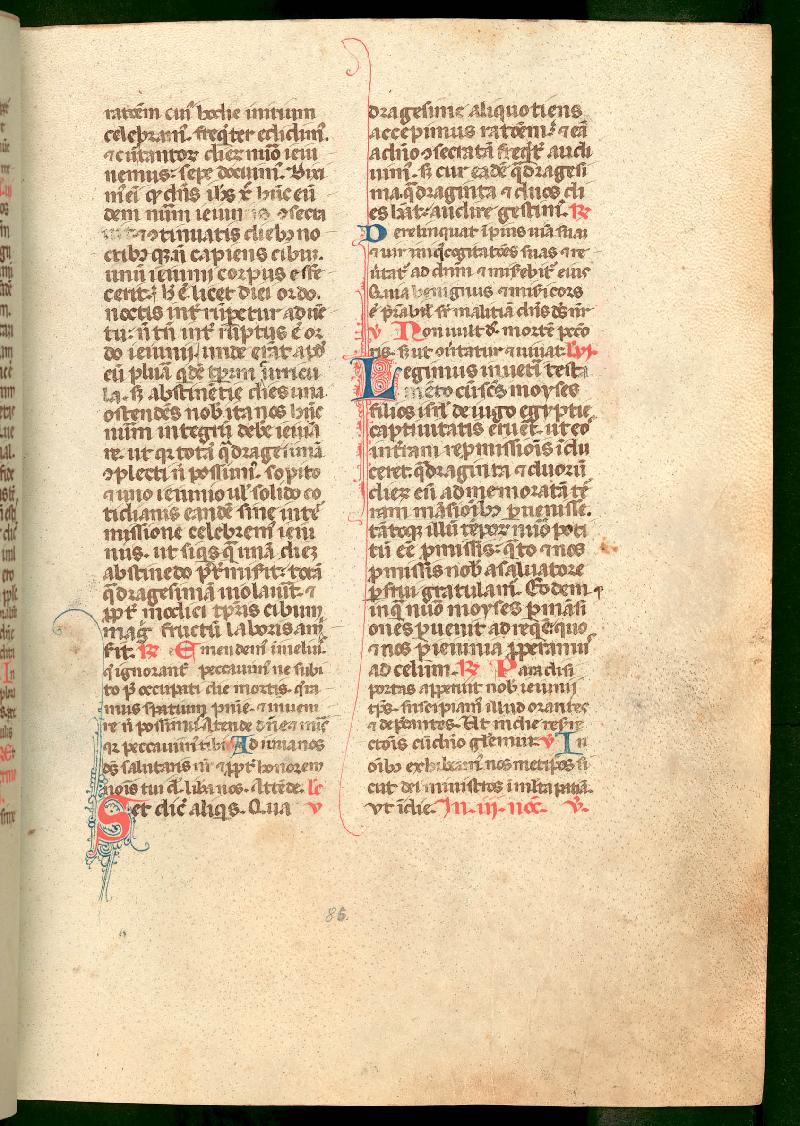 ratōem cuī hodie initium
celebram̄. freq̄ter edidim̄.
⁊ curantoꝝ dieꝝ nr̄o ieiu
nemus: sepe docuim̄. Dixi
m̄ ei q̄ dn̄s ih̄s xp̄ hūc eū
dem num̄ ieiunii ꝯsecra
ꝯtinuatis dieb; no
ctib; q̄ n̄ capiens cibū.
unū ieiunii corpus effe
cerit. h̄ ē licet diei ordo.
noctis int̄rūpetur aduē
tu: n̄ tn̄ int̄ruptus ē or
do ieiunii. unde
cū
la. s; abstinētie dies una
ostendēs nob̄ ita nos hūc
num̄ integrū debe ieiūa
re. ut q̄ totā q̄dragesimā
ꝯplecti n̄ possim̄. sopito
⁊ uno ieiunio ul̄ solido co
tidianis eandē sine int̄
missione celebrem̄ ieiu
niis. ut siq̄s q̄ unā dieꝫ
abstinēdo p̄t̄misit: totā
q̄dragesimā uiolauit. ⁊
ꝓpt̄ modici tp̄ris cibum
mag fructū laboris am̄
sit. ℞ Emendem̄ in meli
q̄ ignorant̄ peccauim̄ ne subi
to p̄ occupati die mortis. q̄ra
mus spatium pnīe. ⁊ inueni
re n̄ possim̄. Attende dn̄e ⁊ mīe
q̄ peccauim̄ tibi. Adiuua nos
d̄s salutaris nr̄ ⁊ ꝓpt̄ honorem
nōis tui d. libānos. Attēde. lc̄
Set dic̄ aliq̄s. Qua v
dragesime aliquotiens
accepimus ratōem: ⁊ eā
a dn̄o ꝯsecratā freq̄t̄ audi
uim̄. s; cur eadē q̄dragesi
ma. q̄draginta ⁊ duos di
es hēat: audire gestim̄. ℞
Derelinquat īpius uiā suā
⁊ uir iniq̄ cogitatōes suas ⁊ re
u̇tat̄ ad dn̄m ⁊ miserebit̄ eius
Quia benignus ⁊ misericors
ē ⁊ p̄stabil̄ sr̄ malitiā dn̄s d̄s nr̄
v Non uult d̄s mortē pecc̄o
ris. s; ut ꝯu̇tatur ⁊ uiuat. lc̄.
Legimus in ueti testa
mēto cū sc̄s moyses
filios isrl̄ de iugo egyptie
captiuitatis erueret. ut eo
in t̄ram rep̄missiōis īdu
ceret. q̄draginta ⁊ duorū
dieꝝ eū ad memoratā t̄
ram māsiōib; p̄uenisse.
tātoq; illū tēpoꝝ nūo poti
tū eē p̄missis: q̄to ⁊ nos
p̄missis nob̄ a saluatore
p̄frui gratulam̄. Eodem
inq̄ nūo moyses p̄ māsi
ones p̄uenit ad req̄e quo
⁊ nos p̄ ieiunia ꝓperam̄
ad celum. ℞ Paradisi
portas apperuit nob̄ ieiunii
tp̄s. suscipiam̄ illud orantes
⁊ dep̄cantes. Ut in die resur̄e
ctōis cū dn̄o gl̄emur. v In
oīb; exhibeam̄ nosmetip̄os si
cut dei ministros ī multa paciā.
Ut ī die. In .iij. noc̄. v̄.
86.